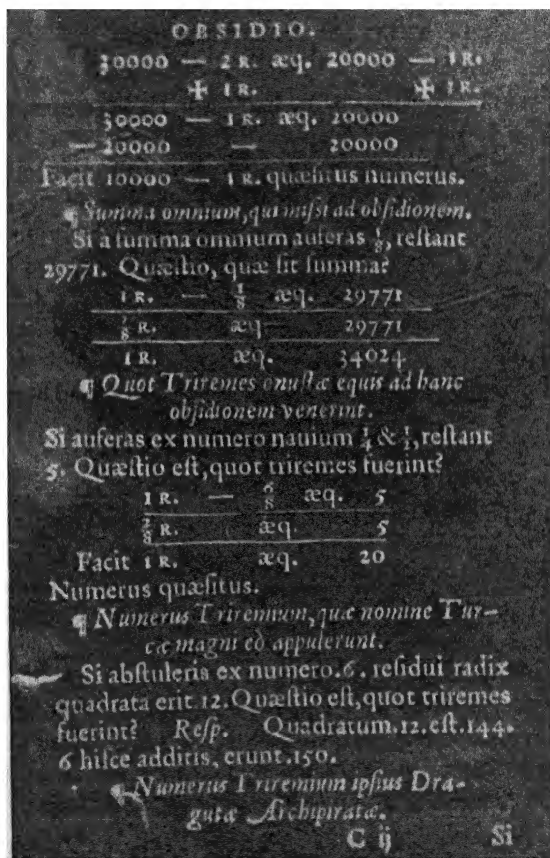 OBSIDIO.
30000 — 2 R. æq. 20000 — 1 R.
✠ 1 R. ✠ 1 R.
30000 — 1 R. æq. 20000
— 20000 — 20000
Facit 10000 — 1 R. quæsitus numerus.
¶ Summa omnium, qui missi ad obsidionem.
Si a summa omnium auferas 1/8, restant
29771. Quæstio, quæ sit summa?
1 R. — 1/8 æq. 29771
7/8 R. æq— 29771
1 R. æq. 34024
¶ Quot Triremes onustæ equis ad hanc
obsidionem venerint.
Si auferas ex numero nauium 1/4 & 1/2, restant
5. Quæstio est, quot triremes fuerint?
1 R. — 6/8 æq. 5
2/8 R. æq. 5
Facit 1 R. æq. 20
Numerus quæsitus.
¶ Numerus Triremium, quæ nomine Tur-
cæ magni eò appulerunt.
Si abstuleris ex numero.6. residui radix
quadrata erit.12. Quæstio est, quot triremes
fuerint? Resp. Quadratum.12.est.144.
6 hisce additis, erunt.150.
¶ Numerus Triremium ipsius Dra-
gutæ Archipiratæ.
C ij Si